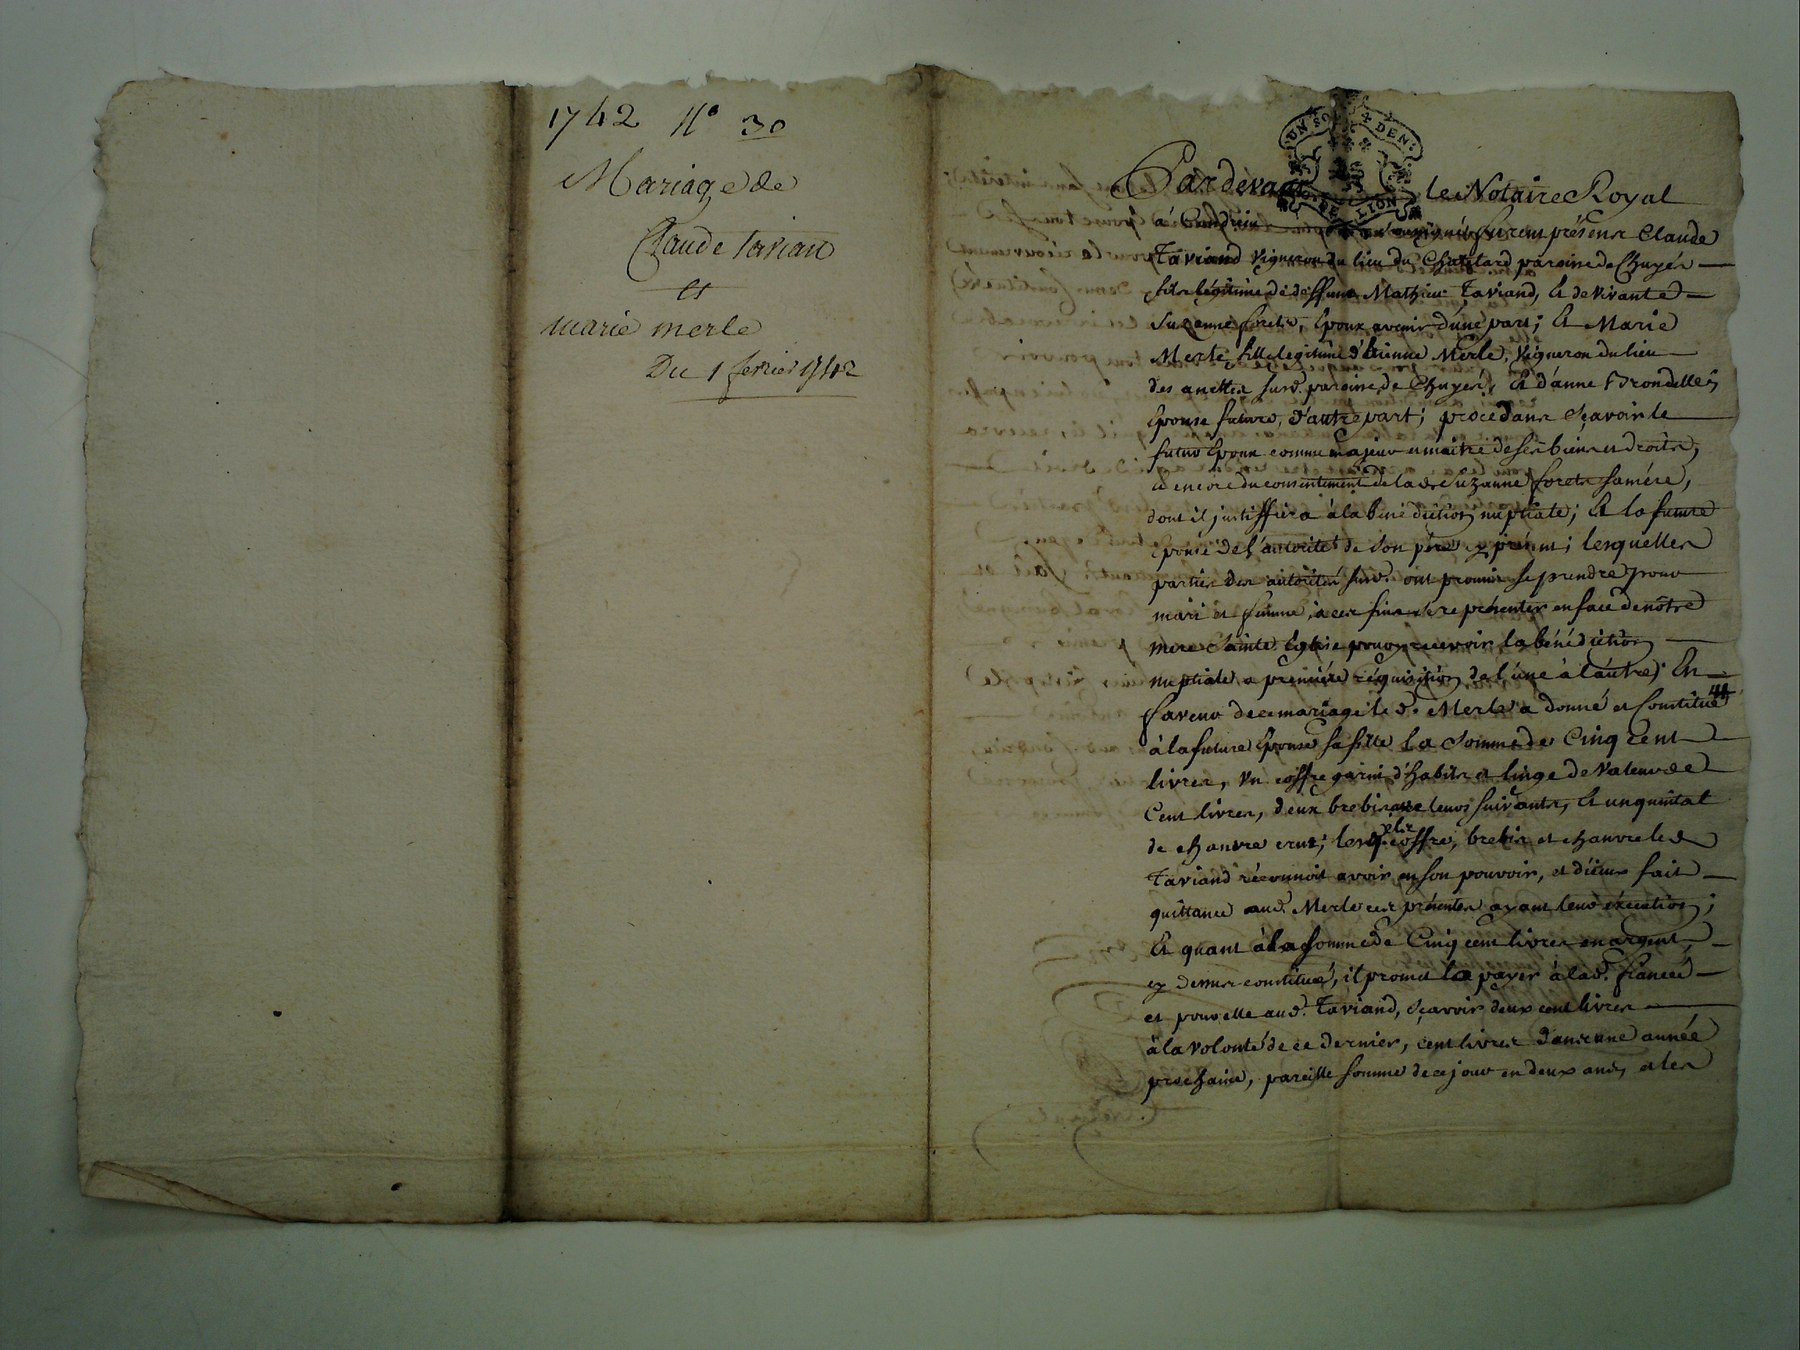 1742 N° 30
Mariage de
Claude Tavian
et
marie merle
Du 1 fevrier 1742
UN SOL DEN.
DE LION
Pardevant le Notaire Royal
à soussigné furent présens Claude
Taviand vigneron du lieu du Chatelard paroisse de Chuyés
fils légitime de deffunt Mathieu Taviand, et de vivante
Suzanne foretz, Epoux avenir d'une part; et Marie
Merle fille legitime d'Etienne Merle, vigneron du lieu
des anettes susd. paroisse de Chuyés, et d'anne
Epouse future, d'autre part; procedans sçavoir le
futur Epoux comme majeur et maitre de ses biens et droits,
et encore du consentement de lad. Suzanne foretz sa mére,
dont il justiffiera à la bénédiction nuptiale; et la future
Epouse de l'autorité de son pére cy présent; lesquelles
parties des autorités susd. ont promis se prendre pour
mari et femme, à ces fins se représenter en face de nôtre
mere Sainte Eglise pour recevoir la bénédiction
nuptiale a premiére réquisition de l'une à l'autre; En
faveur de ce mariage led. Merle a donné et Constitué
à la future Epouse sa fille la Somme de Cinq Cent
livres, un coffre garni d'habits et linge de valeur de
Cent livres, deux brebis avec leurs suivants, et un quintal
de chanvre crut; lesq. coffre, brebis et chanvre led.
Taviand réconnoit avoir en son pouvoir, et d'iceux fait
quittance aud. Merle ces présentes ayant leur éxécution;
Et quant à la somme de Cinq cent livres en argent,
cy dessus constituée, il promet la payer à lad. fiancée
et pour elle aud. Taviand, sçavoir deux cent livres
à la volonté de ce dernier, cent livres dans une année
prochaine, pareille somme de ce jour en deux ans, et les